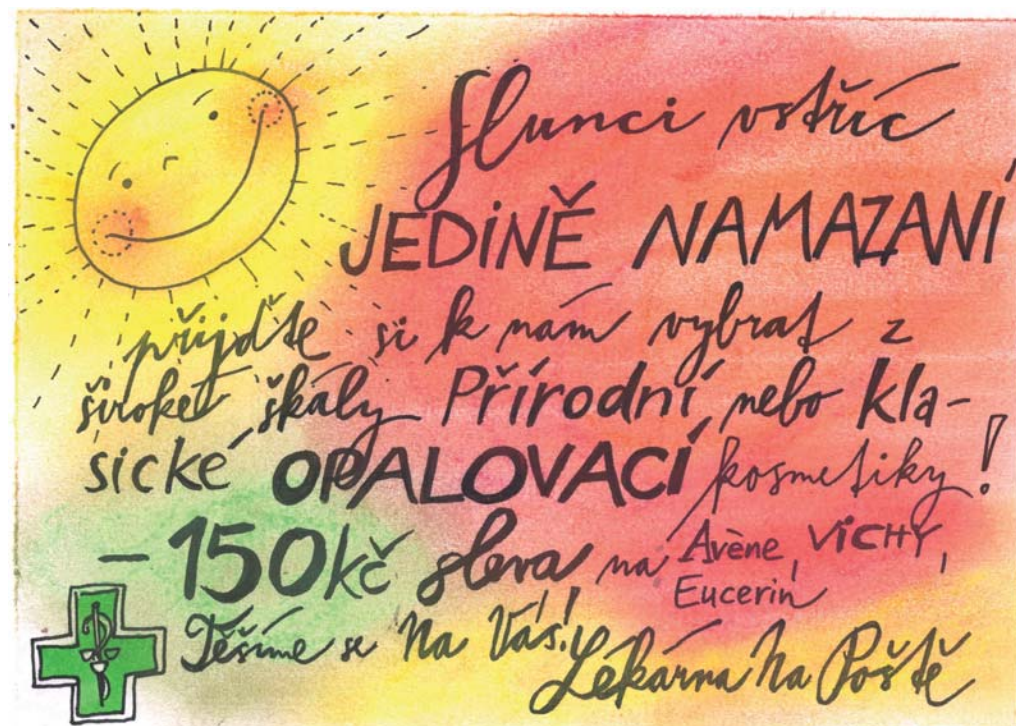 Slunci vstříc
JEDINĚ NAMAZANÍ
přijďte si k nám vybrat z
široké škály Přírodní nebo kla-
sické OPALOVACÍ kosmetiky!
- 150 kč sleva na Avène, VICHY,
Eucerin
Těšíme se Na Vás!
Lékárna Na Poště